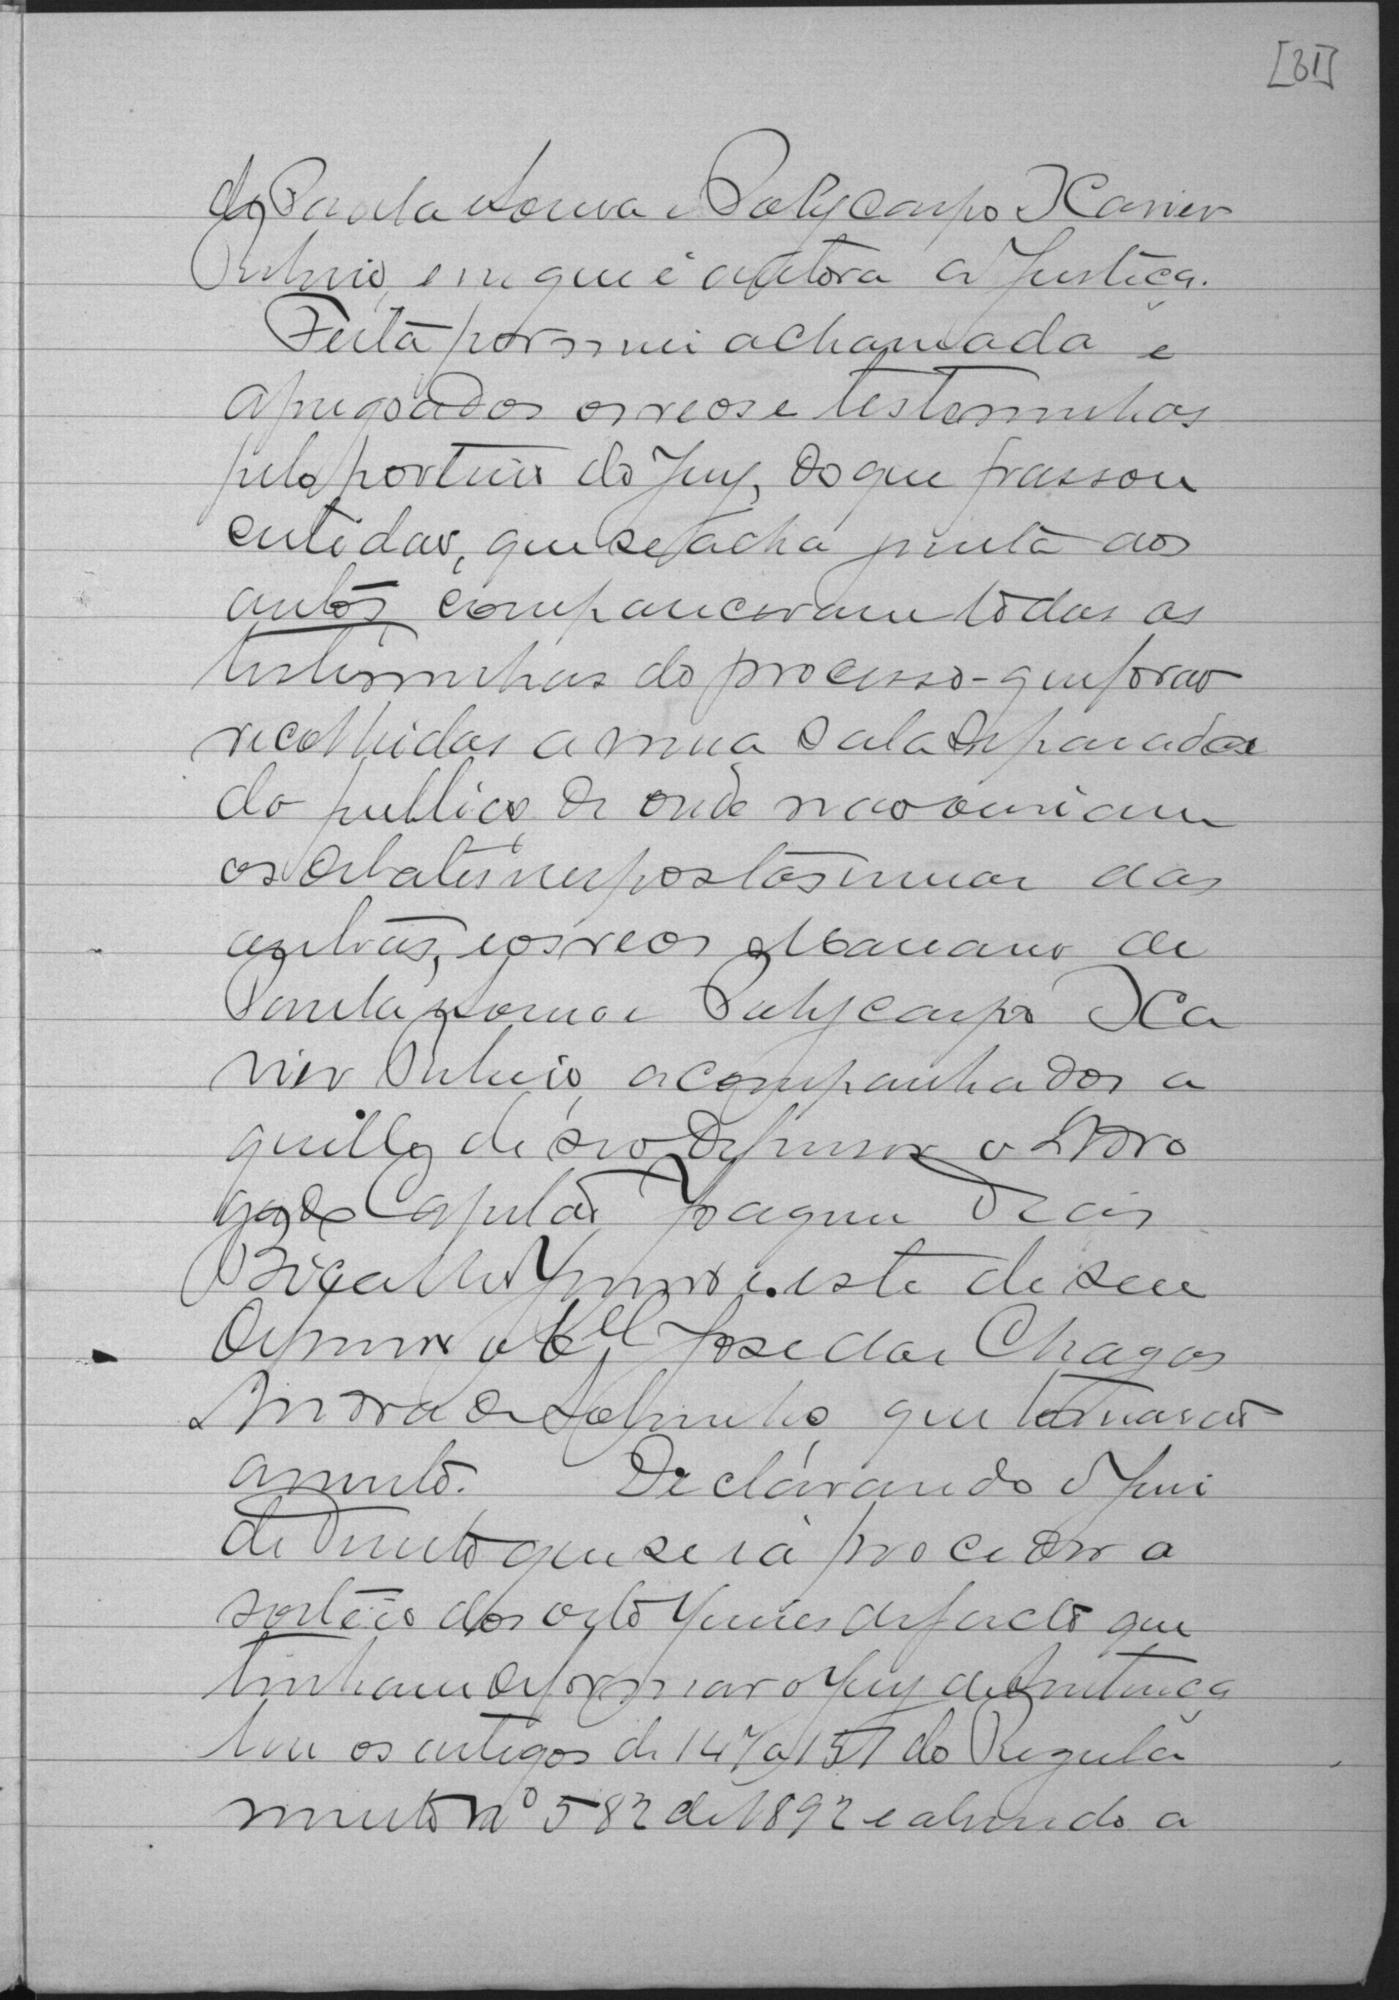 [31]
de Paula Sousa e Polycarpo Xavier
Rubrio, em que é autora a Justiça.
Feita por mim a chamada e
apregoados os reos e testeminhas
pelo porteiro do Jury, do que passou
certidão, que se acha junta aos
autos, compareceram todas as
testiminhas do processo - que forão
recolhidas a uma sala separada
do publico de onde não ouviam
os debates respostas umas das
outras, e os reos Marianno de
Paula Sousa e Polycarpo Xa
vier acompanhados a
quelle de seo defensor o Advo
gado Capitão Joaquim Dias
Bicalho Junior e este de seu
defensor o Bel José das Chagas
Andrade Sobrinho, que tomarão
assento. Declarando o Jui
de Direito que se ia proceder o
sorteio dos oito Juises de facto que
tinham de formar o Jury de Sentença
leu os artigos de 147 a 151 do Regula
mento nº 582 de 1892 e abrindo a